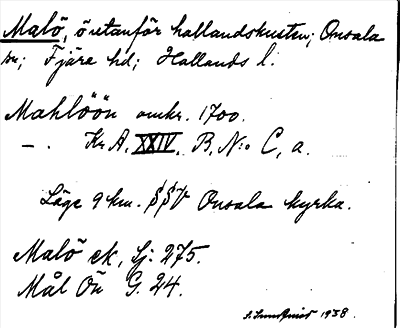 Malö, öutanför hallandskusten; Onsala
sn; Fjäre hd; Hallands l.
Mahlöön omkr. 1700.
–. Kr A, XXIV, B, N:o C, a.
Läge 9 km. SSV Onsala kyrka.
Malö ek, Lj: 275.
Mål Ön G. 24.
1938